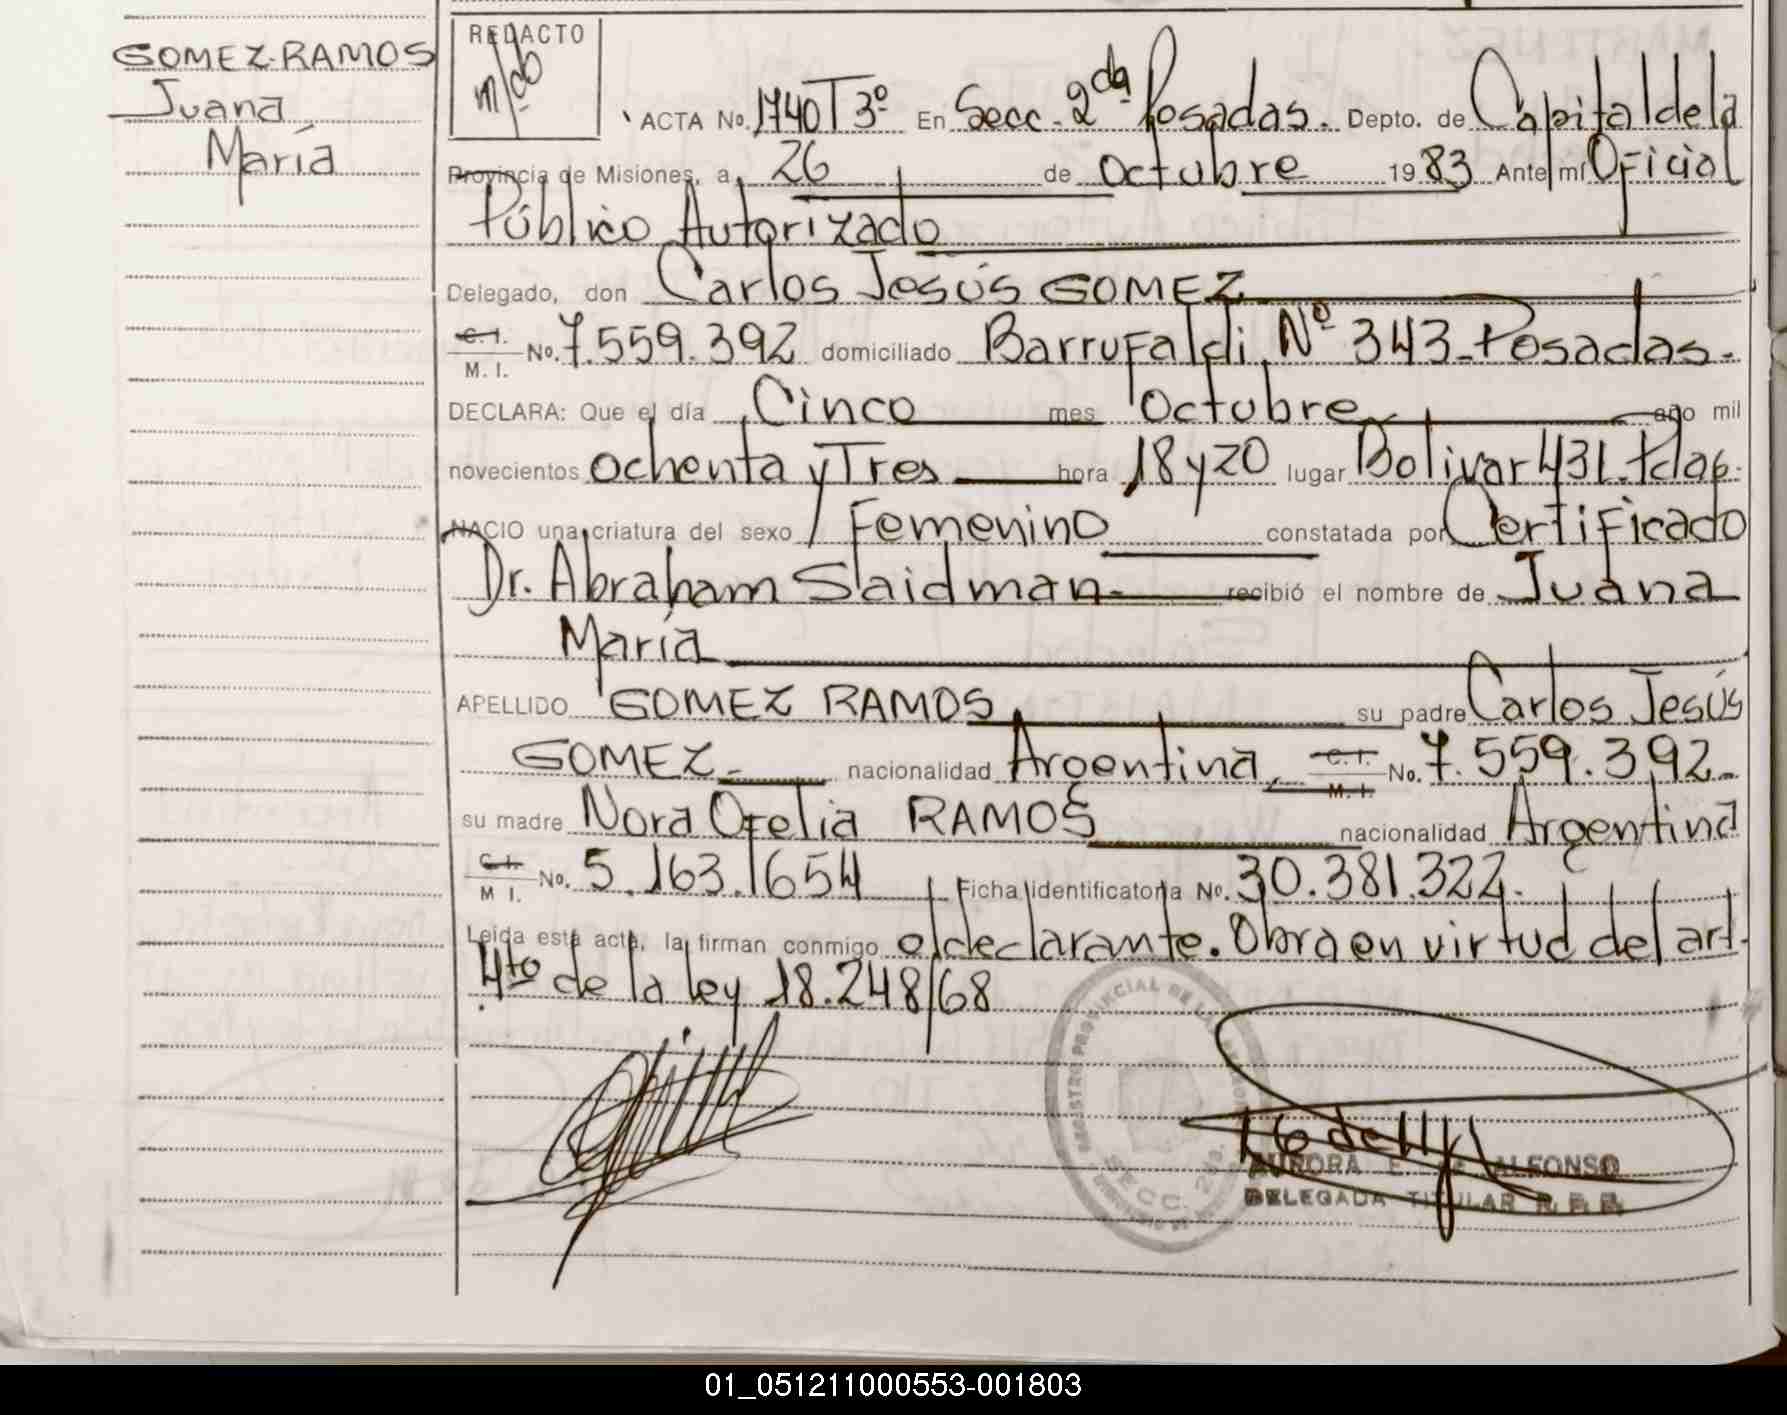 GOMEZ-RAMOS
Juana
María
REDACTO
ACTA No. 1740 T 3º En Secc. 2da Posadas. Depto. de Capital de la
Provincia de Misiones, a 26 de Octubre 1983 Ante mí Oficial
Público Autorizado
Delegado, don Carlos Jesús GOMEZ
C.I.
M. I. No. 7.559.392 domiciliado Barrufaldi Nº 343-Posadas.
DECLARA: Que el día Cinco mes Octubre año mil
novecientos ochenta y Tres hora 18 y 20 lugar Bolivar 431
NACIO una criatura del sexo Femenino constatada por Certificado
Dr. Abraham Slaidman- recibió el nombre de Juana
María
APELLIDO GOMEZ RAMOS su padre Carlos Jesús
GOMEZ nacionalidad Argentina, C.I. M.I. No. 7.559.392-
su madre Nora Ofelia RAMOS nacionalidad Argentina
C.I.
M I. No. 5.163.1654 Ficha identificatoria No. 30.381.322.
Leida esta acta, la firman conmigo el declarante. Obra en virtud del art.
4to de la ley 18.248/68
REGISTRO PROVINCIAL DE LAS
SECC. 2da.
AURORA E. DE ALFONSO
DELEGADA TITULAR R. P. P.
01_051211000553-001803